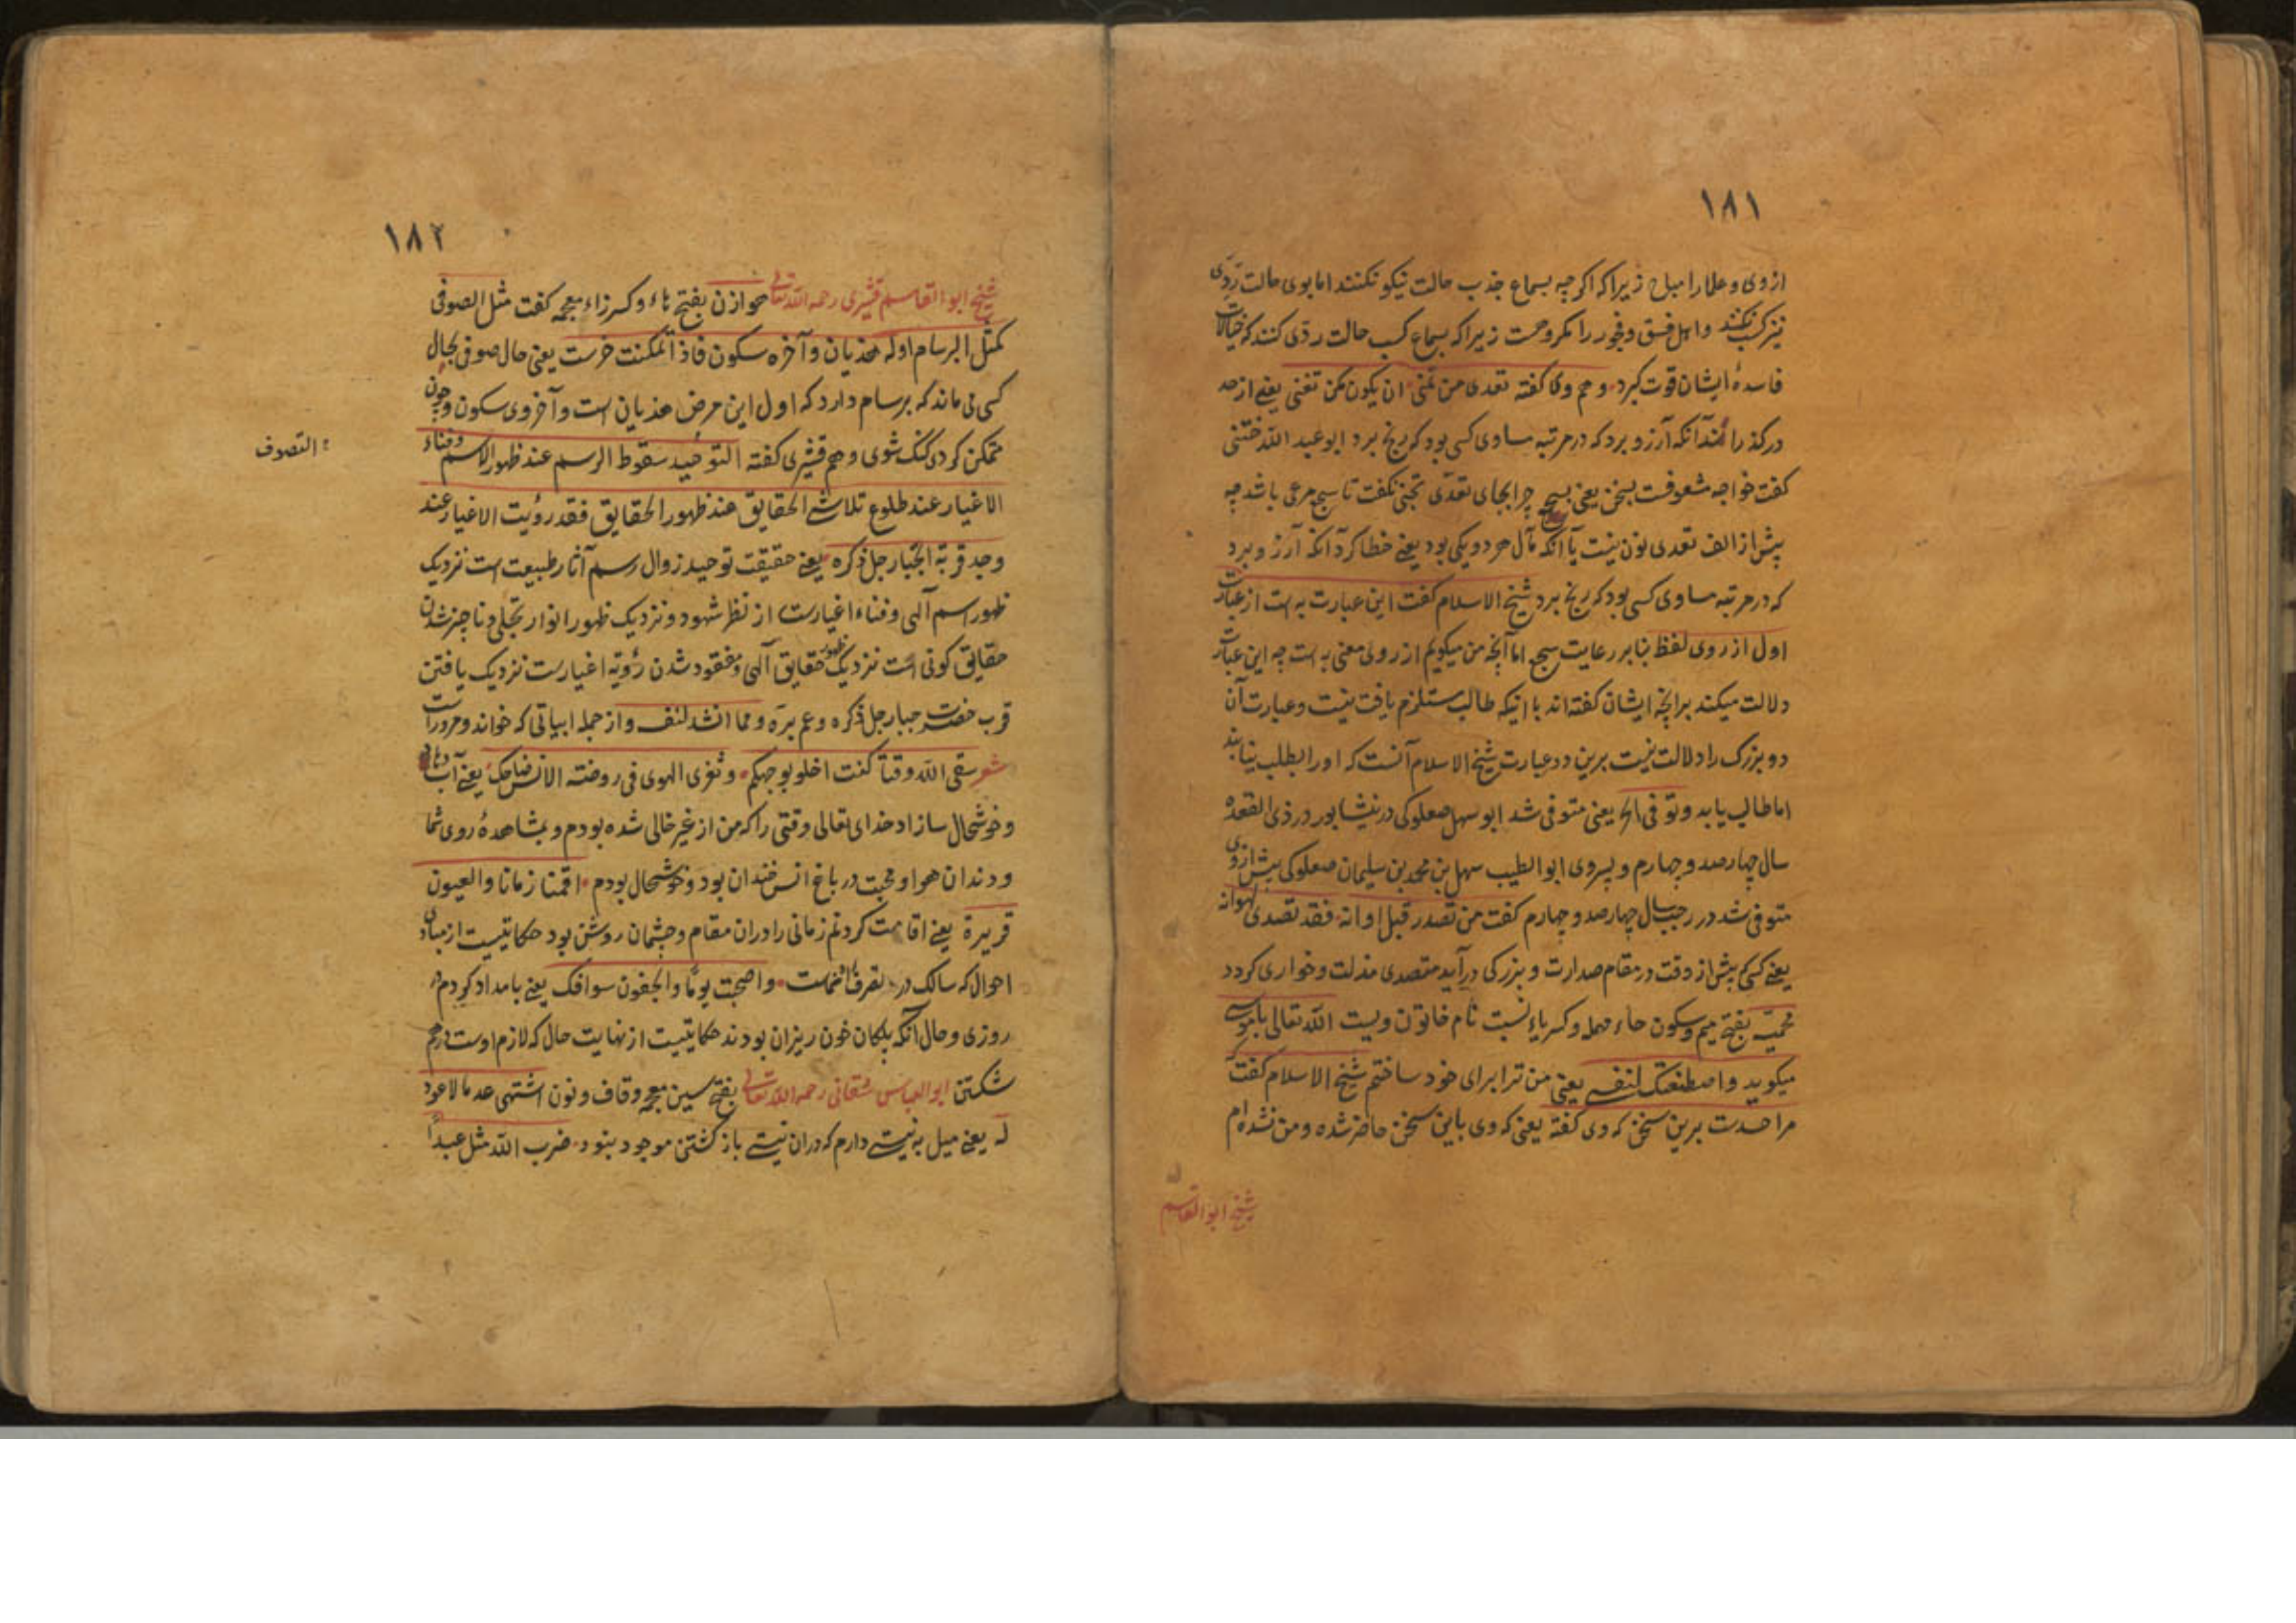 ١٨١
ازوی و علما را مباح زیراکه اکرچه بسماع جذب حالت نیکو نکنند اما بوی حالت ردّی
نیز کسب نکنند و اهل فسق و فجور را مکروهست زیراکه بسماع کسب حالت ردّی کنند که خیالات
فاسدهٔ ایشان قوت کیرد و هم وی کفته تعدی من تمنی ان یکون کمن تعنی یعنی از حد
درکذرانند آنکه آرزو برد که در مرتبه مساوی کسی بود که رنج برد ابو عبد الله ختنی
کفت خواجه شعوفت بسخن یعنی بسجع چرا بجای تعدّی تجنی نکفت تا سجع مرعی باشد چه
پیش از الف تعدی نون نیست یا آنکه مآل هر دو یکی بود یعنی خطا کرد آنکه آرزو برد
که در مرتبه مساوی کسی بود که رنج برد شیخ الاسلام کفت این عبارت به است از عبارت
اول از روی لفظ بنابر رعایت سجع اما آنچه من میکویم از روی معنی به است چه این عبارت
دلالت میکند برانچه ایشان کفته اند با انیکه طالب مستلزم یافت نیست و عبارت آن
دو بزرک را دلالت نیست برین و دعبارت شیخ الاسلام آنست که او را بطلب نیابند
اما طالب یابد و توفی الخ یعنی متوفی شد ابو سهل صعلوکی در نیشابور در ذی القعده
سال چهارصد و چهارم و پسر وی ابو الطیب سهل بن محمد بن سلیمان صعلوکی پیش از وی
متوفی شد در رجب سال چهارصد و چهارم کفت من تصدر قبل اوانه فقد تصدی لهوانه
یعنی کسی که پیش از وقت در مقام صدارت و بزرکی درآید متصدی مذلت و خواری کردد
محمیّه بفتح میم و سکون حاء مهمله و کسر یاء نسبت نام خاتون ویست الله تعالی باموسی
میکوید و اصطنعتک لنفسی یعنی من ترا برای خود ساختم شیخ الاسلام کفت که
مرا حسدت برین سخن که وی کفته یعنی که وی باین سخن حاضر شده و من نشده ام
شیخ ابو القاسم
١٨٢
شیخ ابو القاسم قشیری رحمه الله تعالی هوازن بفتح هاء و کسر زاء معجمه کفت مثل الصوفی
کمثل البرسام اوله هذیان و آخره سکون فاذا تمکنت خرست یعنی حال صوفی بحال
کسی می ماند که برسام دارد که اول این مرض هذیان است و آخر وی سکون و چون
متمکن کردی کنک شوی و هم قشیری کفته التوحید سقوط الرسم عند ظهور الاسم و فناء
: التصوف
الاغیار عند طلوع تلاشی الحقایق عند ظهور الحقایق فقد رؤیت الاغیار عند
وجد قربة الجبار جل ذکره یعنی حقیقت توحید زوال رسم آثار طبیعت است نزدیک
ظهور اسم آلهی و فناء اغیارست از نظر شهود و نزدیک ظهور انوار تجلی و ناچیز شدن
حقایق کونی است نزدیک ظهور حقایق آلهی و مفقود شدن رؤیة اغیارست نزدیک یافتن
قرب حضرت جبار جل ذکره و عم برّه و مما انشد لنفسه و از جمله ابیاتی که خواند و مرورات
شعر سقی الله وقتاً کنت اخلو بوجهکم و ثغری الهوی فی روضة الانس ضاحک یعنی آب دهاد
و خوشحال سازاد خدای تعالی وقتی را که من از غیر خالی شده بودم و بمشاهدهٔ روی شما
و دندان هوا و محبت در باغ انس خندان بود و خوشحال بودم اقمنا زمانا و العیون
قریرة یعنی اقامت کردیم زمانی را دران مقام و چشمان روشن بود حکایتیست از مبادی
احوال که سالک در تصرف انهاست و اصبحت یومًا و الجفون سوافک یعنی بامداد کردم
روزی و حال آنکه پلکان خون ریزان بودند حکایتیست از نهایت حال که لازم اوست درهم
شکستن ابو العباس شقانی رحمه الله تعالی بفتح سین معجمه و قاف و نون اشتهی عدما لا عود
له یعنی میل به نیستی دارم که دران نیستی باز کشتن موجود بنود ضرب الله مثل عبداً